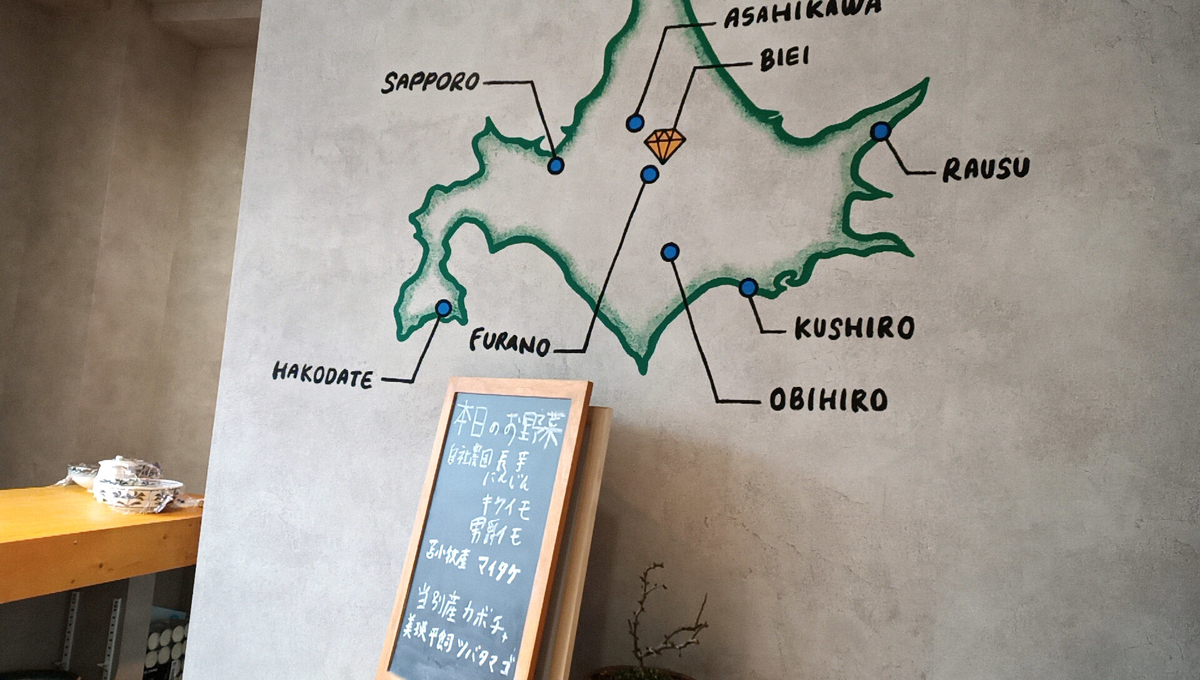 ASAHIKAWA
BIEI
SAPPORO
RAUSU
KUSHIRO
FURANO
HAKODATE
OBIHIRO
本日のお野菜
自社農園 長芋
にんじん
キクイモ
男爵イモ
苫小牧産 マイタケ
当別産 カボチャ
美瑛平飼ツバタマゴ